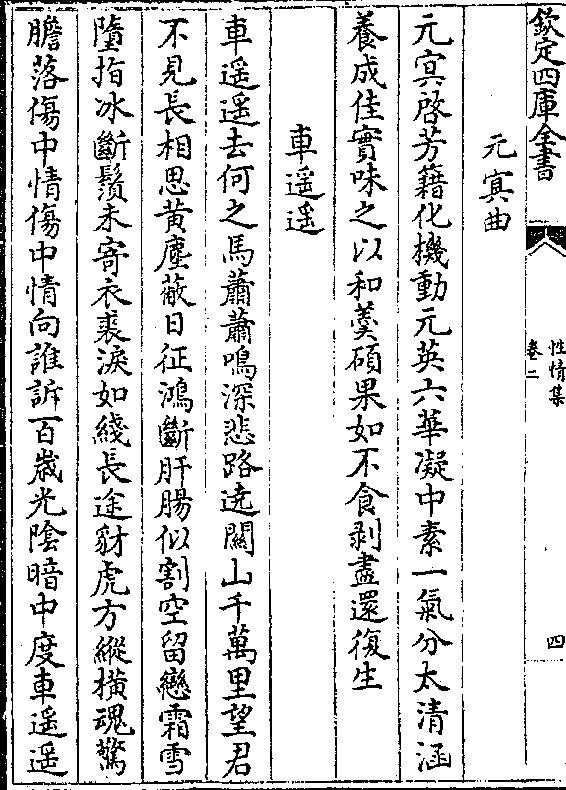 欽定四庫全書
性情集
卷二
四
元冥曲
元冥啓芳藉化機動元英六華凝中素一氣分太清涵
養成佳實味之以和羹碩果如不食剥盡還復生
車遥遥
車遥遥去何之馬蕭蕭鳴深悲路遶關山千萬里望君
不見長相思黄塵蔽日征鴻斷肝腸似割空留戀霜雪
墮指冰斷鬚未寄衣裘淚如綫長途豺虎方縱横魂驚
膽落傷中情傷中情向誰訴一百歲光陰暗中度車遥遥